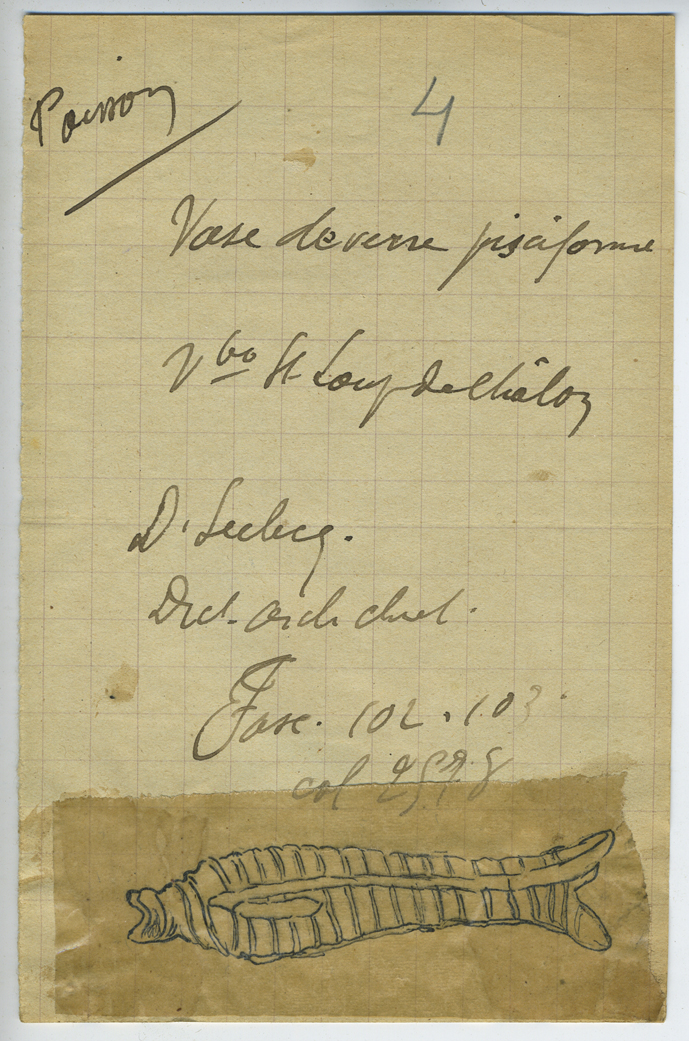 Poisson
4
Vase de verre pisciforme
Vbo St Loup de Châlon
D. Leclecq.
Dict. arch chret.
Fasc. 102.103.
col 2578